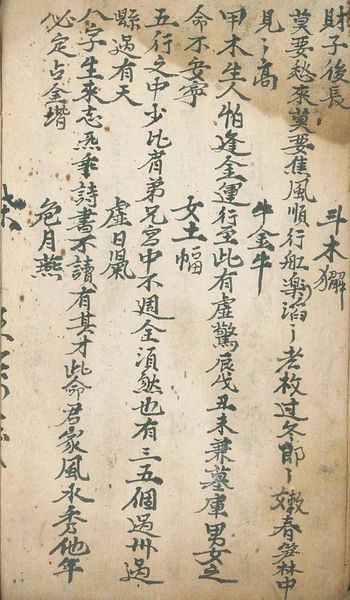 財子後長　斗木獬
莫要愁來莫要焦風順行船樂滔〻老枚过冬郎〻嫩春笋林中
見〻高　牛金牛
甲木生人怕逢金運行至此有虛驚辰戌丑未兼墓庫男女之
命不安寧　女土幅
五行之中少比肩弟兄宮中不週全須然也有三五個過州過
縣過有天　虛日鼠
八字生來志炁乖詩書不讀有其才此命君家風水秀他年
必定占金堦　危月燕